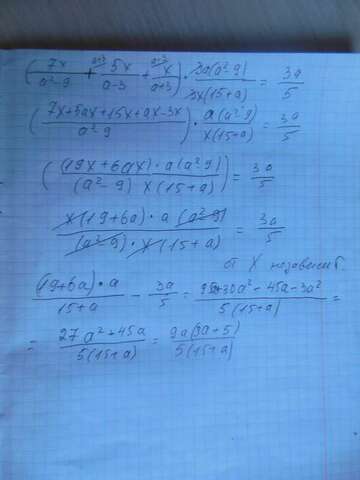 (7x/(a²-9) + a+3 5x/(a-3) + a-3 x/(a+3)) · 3a(a²-9)/3x(15+a) = 3a/5
((7x+5ax+15x+ax-3x)/(a²-9)) · a(a²-9)/x(15+a) = 3a/5
((19x+6ax)·a(a²-9)/(a²-9)x(15+a)) = 3a/5
x(19+6a)·a(a²-9)/(a²-9)·x(15+a) = 3a/5
от X независит.
(19+6a)·a/(15+a) - 3a/5 = (95a+30a²-45a-3a²)/5(15+a) =
= (27a²+45a)/5(15+a) = 9a(3a+5)/5(15+a)